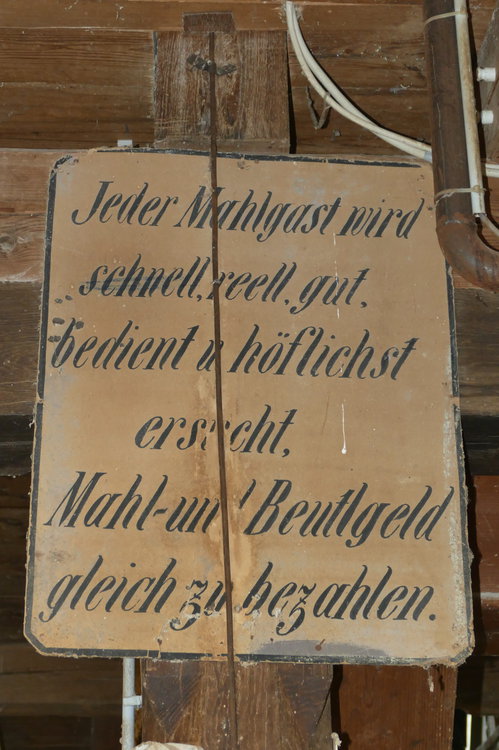 Jeder Mahlgast wird
schnell, reell, gut,
bedient u höflichst
ersucht,
Mahl-und Beutlgeld
gleich zu bezahlen.